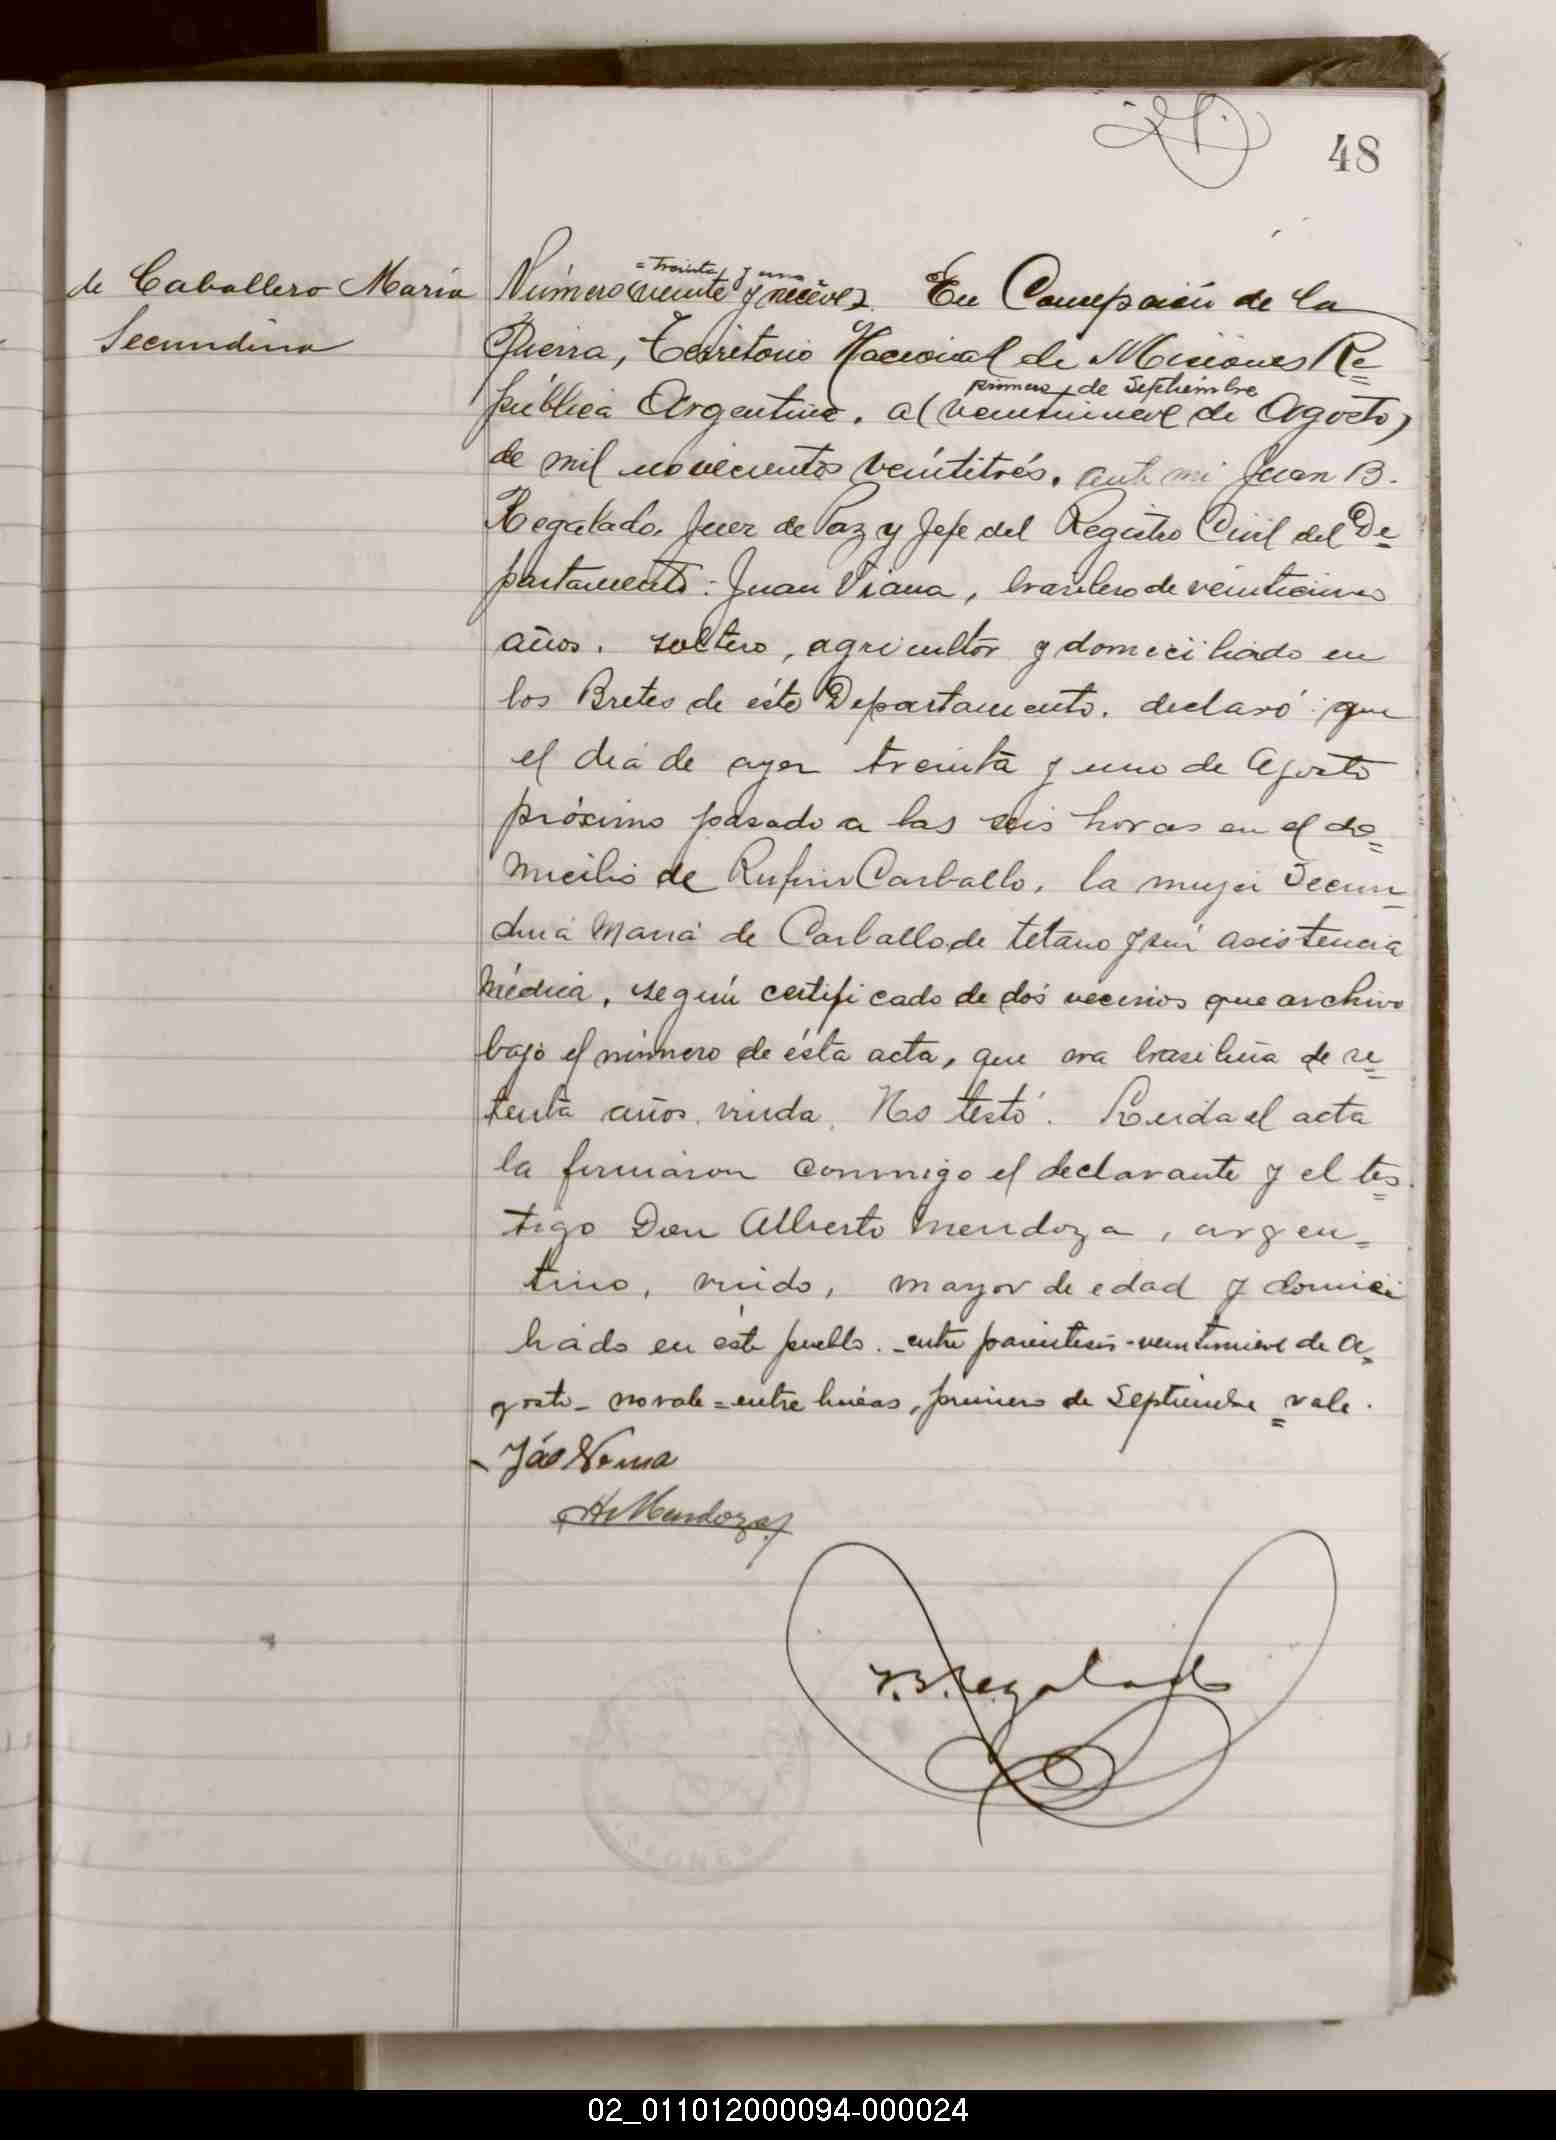 48
de Caballero María
Secundina
= treinta y uno =
Número (veinte y nueve). En Concepción de la
Sierra, Territorio Nacional de Misiones Re=
primero de Septiembre
pública Argentina. a (veintinueve de Agosto)
de mil novecientos veintitrés. ante mi Juan B.
Regalado. Juez de Paz y Jefe del Registro Civil del De=
partamento: Juan Viana, brasilero de veinticinco
años. soltero, agricultor y domiciliado en
los Bretes de éste Departamento. declaró: que
el día de ayer treinta y uno de Agosto
próximo pasado a las seis horas en el do=
micilio de Rufino Carballo, la mujer Secun=
dina María de Carballo de tetano y sin asistencia
médica, según certificado de dos vecinos que archivo
bajo el número de ésta acta, que era brasileña de se=
tenta años. viuda. No testó. Leida el acta
la firmaron conmigo el declarante y el tes=
tigo Don Alberto Mendoza, argen=
tino, viudo, mayor de edad y domici
liado en éste pueblo. - entre paréntesis - veintinueve de A=
gosto - no vale = entre lineas, primero de Septiembre = vale.
Mendoza
J. B. Regalado
02_011012000094-000024